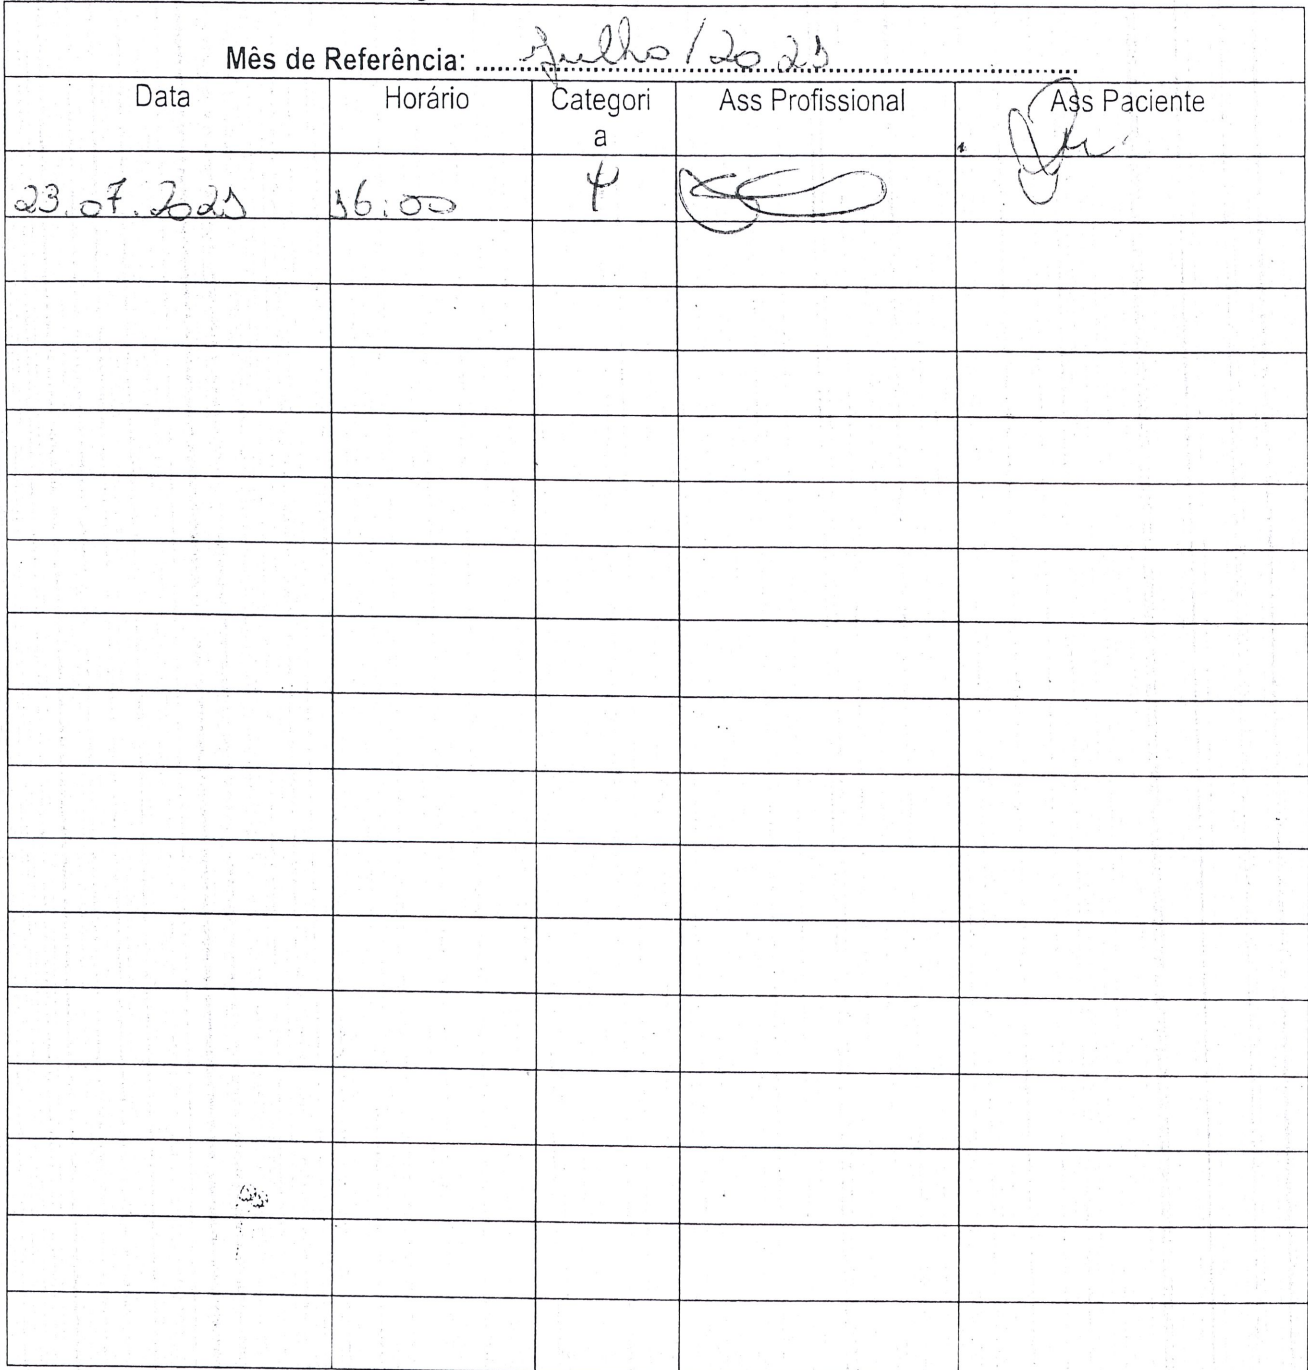 Mês de Referência: Julho / 2021
Data Horário Categori Ass Profissional Ass Paciente
a
23.07.2021 16:00 Ψ